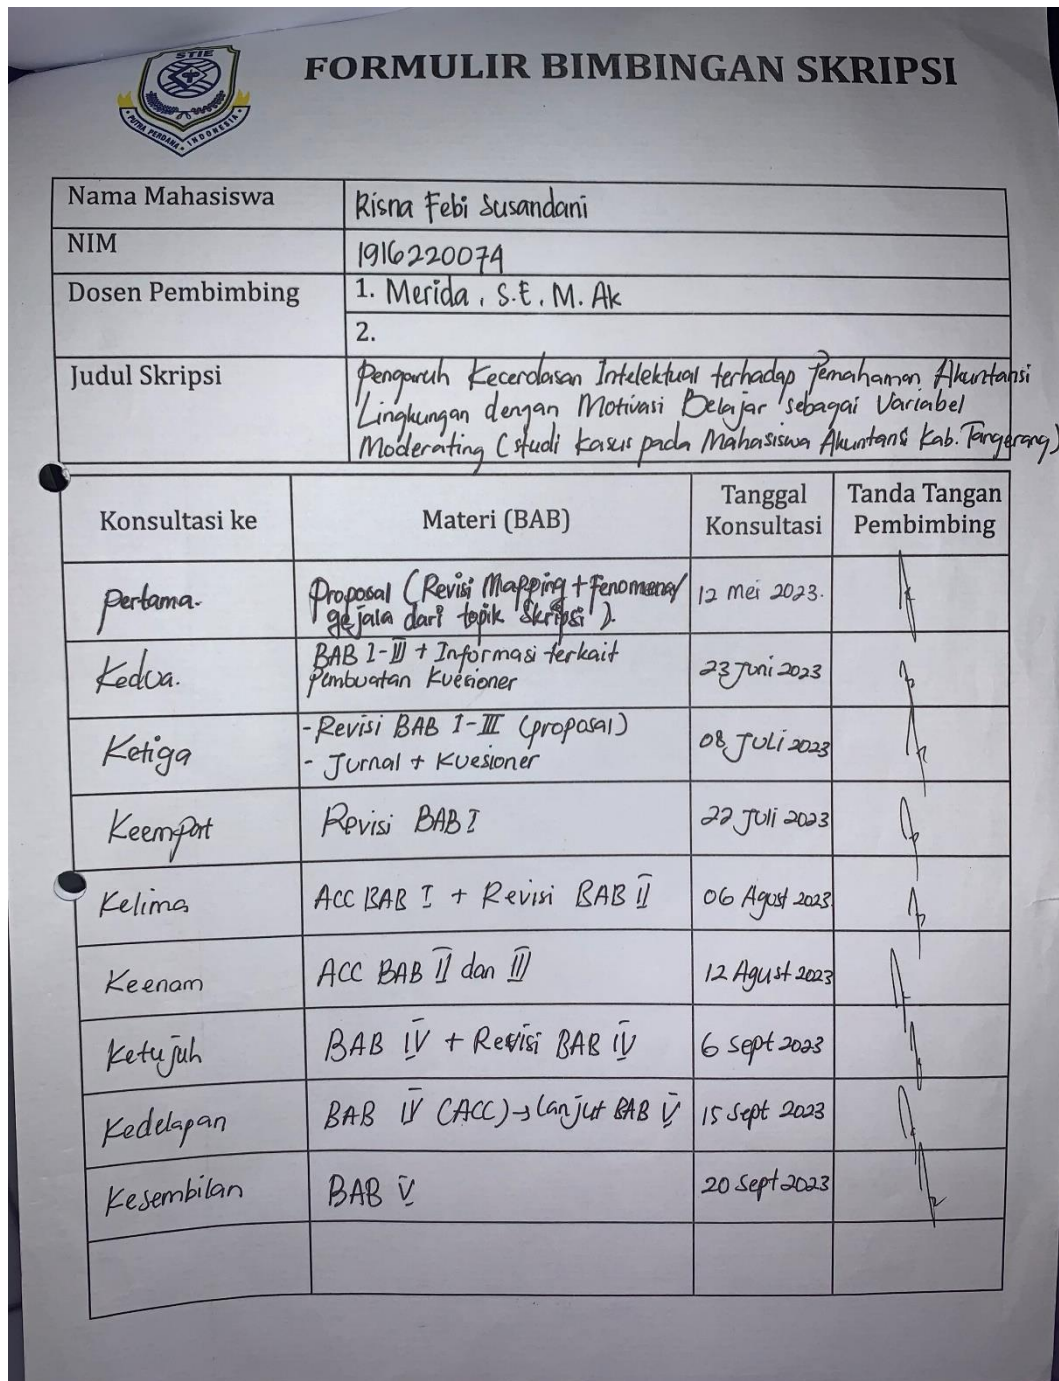 STIE
PUTRA PERDANA INDONESIA
FORMULIR BIMBINGAN SKRIPSI
Nama Mahasiswa
Risna Febi Susandani
NIM
1916220074
Dosen Pembimbing
1. Merida, S.E, M. Ak
2.
Judul Skripsi
Pengaruh Kecerdasan Intelektual terhadap Pemahaman Akuntansi
Lingkungan dengan Motivasi Belajar sebagai Variabel
Moderating (studi kasus pada Mahasiswa Akuntansi Kab. Tangerang)
Konsultasi ke
Materi (BAB)
Tanggal
Konsultasi
Tanda Tangan
Pembimbing
Pertama.
Proposal (Revisi Mapping + Fenomena/
gejala dari topik skripsi).
12 Mei 2023.
Kedua.
BAB I-III + Informasi terkait
Pembuatan Kuesioner
23 Juni 2023
Ketiga
- Revisi BAB I-III (proposal)
- Jurnal + Kuesioner
08 Juli 2023
Keempat
Revisi BAB I
22 Juli 2023
Kelima
ACC BAB I + Revisi BAB II
06 Agust 2023
Keenam
ACC BAB II dan III
12 Agust 2023
Ketujuh
BAB IV + Revisi BAB IV
6 Sept 2023
Kedelapan
BAB IV (ACC) → lanjut BAB V
15 Sept 2023
Kesembilan
BAB V
20 Sept 2023